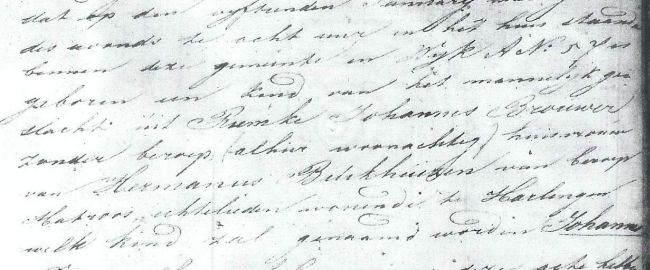 dat op den vyftienden January
des avonds te acht uur in het huis staande
binnen deze gemeente in Wyk A No 57 is
geboren een kind van het mannelyk ge
slacht uit Riemke Johannes Brouwer
zonder beroep (alhier woonachtig) huisvrouw
van Hermanus van beroep
Matroos echtelieden wonende te Harlingen
welk kind zal genaamd worden Johannes